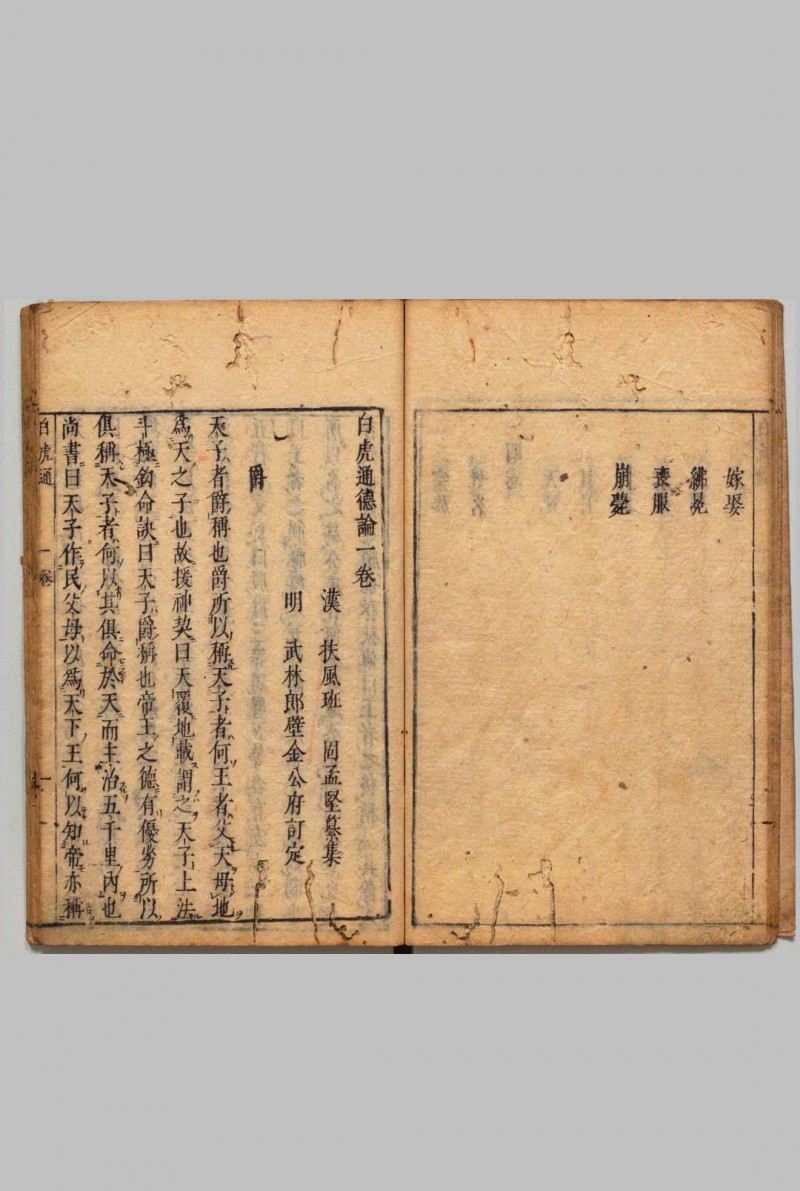 嫁娶
紼冕
喪服
崩薨
白虎通德論一卷
漢　扶風班　固孟堅纂集
明　武林郎璧金公府訂定
爵
天子者爵稱也爵所以稱天子者何王者父天母地
爲天之子也故援神契曰天覆地載謂之天子上法
斗極鈎命訣曰天子爵稱也帝王之德有優劣所以
俱稱天子者何以其俱命於天而主治五千里內也
尚書曰天子作民父母以爲天下王何以知帝亦稱
白虎通　一卷　一